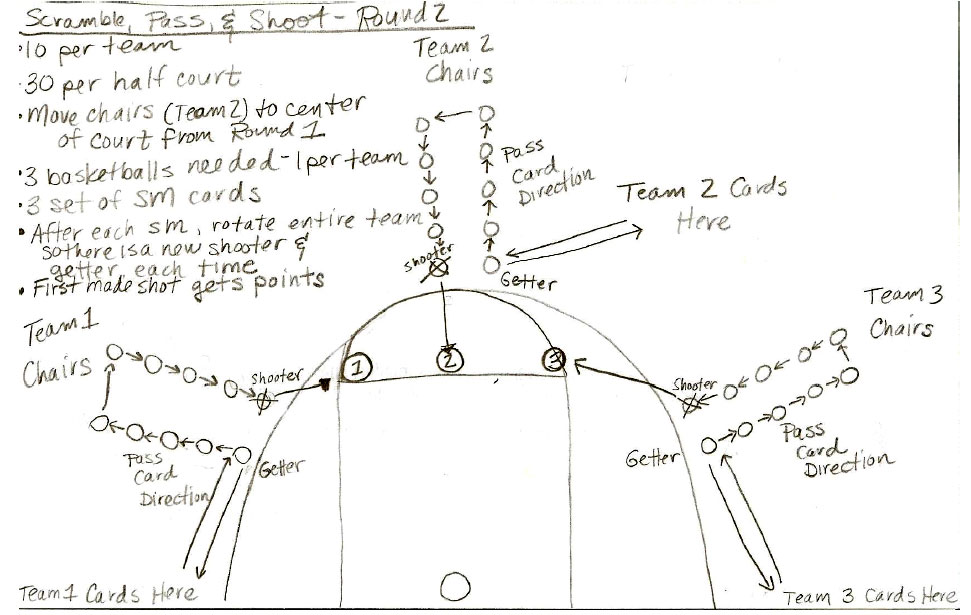 Scramble, Pass, & Shoot - Round 2
• 10 per team
• 30 per half court
• Move chairs (Team 2) to center
of court from Round 1
• 3 basketballs needed - 1 per team
• 3 set of SM cards
• After each sm, rotate entire team
so there is a new shooter &
getter each time
• First made shot gets points
Team 2
Chairs
Pass
Card
Direction
Team 2 Cards
Here
shooter
Getter
Team 1
Chairs
Shooter
1
2
3
Team 3
Chairs
Shooter
Pass
Card
Direction
Getter
Getter
Pass
Card
Direction
Team 1 Cards Here
Team 3 Cards Here